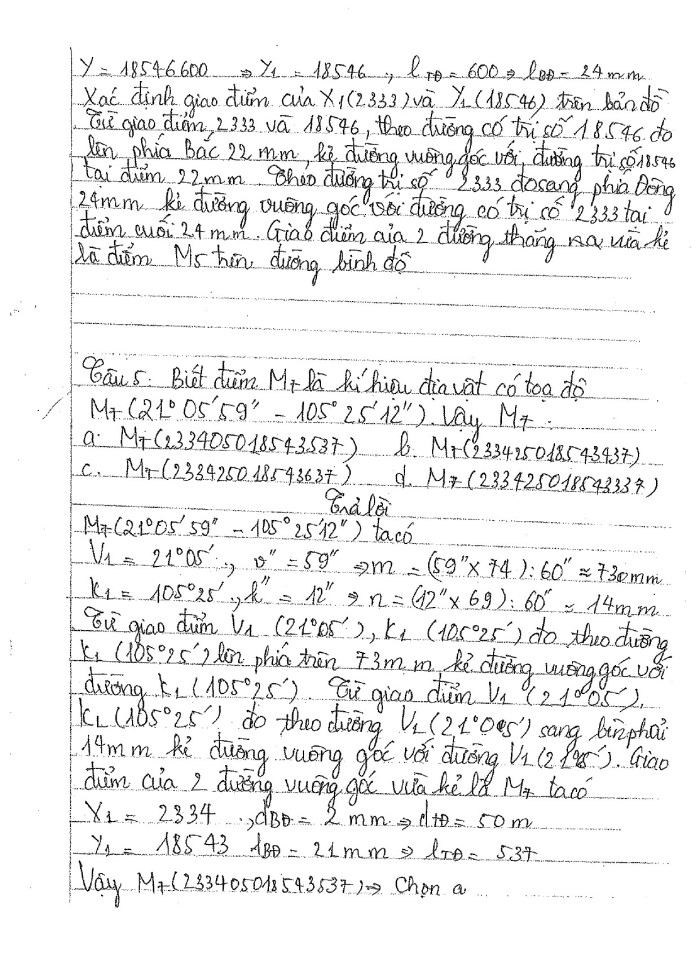 Y = 18546600 ⇒ Y1 = 18546, lTĐ = 600 ⇒ lBĐ = 24mm
Xác định giao điểm của X1(2333) và Y1(18546) trên bản đồ
Từ giao điểm, 2333 và 18546, theo đường có trị số 18546 đo
lên phía Bắc 22 mm, kẻ đường vuông góc với, đường trị số 18546
tại điểm 22mm Theo đường trị số 2333 đo sang phía Đông
24mm kẻ đường vuông góc với đường có trị số 2333 tại
điểm cuối 24mm. Giao điểm của 2 đường thẳng vừa kẻ
là điểm M5 trên đường bình độ
Câu 5: Biết điểm M7 là kí hiệu địa vật có toạ độ
M7(21°05'59" - 105°25'12"). Vậy M7:
a. M7(233405018543537) b. M7(233425018543437)
c. M7(233425018543637) d. M7(233425018543337)
Trả lời
M7(21°05'59" - 105°25'12") ta có
V1 = 21°05', v" = 59" ⇒ m = (59" x 74) : 60" ≈ 730mm
K1 = 105°25', k" = 12" ⇒ n = (12" x 69) : 60" ≈ 14mm
Từ giao điểm V1 (21°05'), K1 (105°25') đo theo đường
K1 (105°25') lên phía trên 73mm kẻ đường vuông góc với
đường K1 (105°25') Từ giao điểm V1 (21°05'),
K1 (105°25') đo theo đường V1 (21°05') sang bên phải
14mm kẻ đường vuông góc với đường V1 (21°05'). Giao
điểm của 2 đường vuông góc vừa kẻ là M7 ta có
X1 = 2334, dBĐ = 2 mm ⇒ dTĐ = 50 m
Y1 = 18543 lBĐ = 21mm ⇒ lTĐ = 537
Vậy M7(233405018543537) ⇒ Chọn a